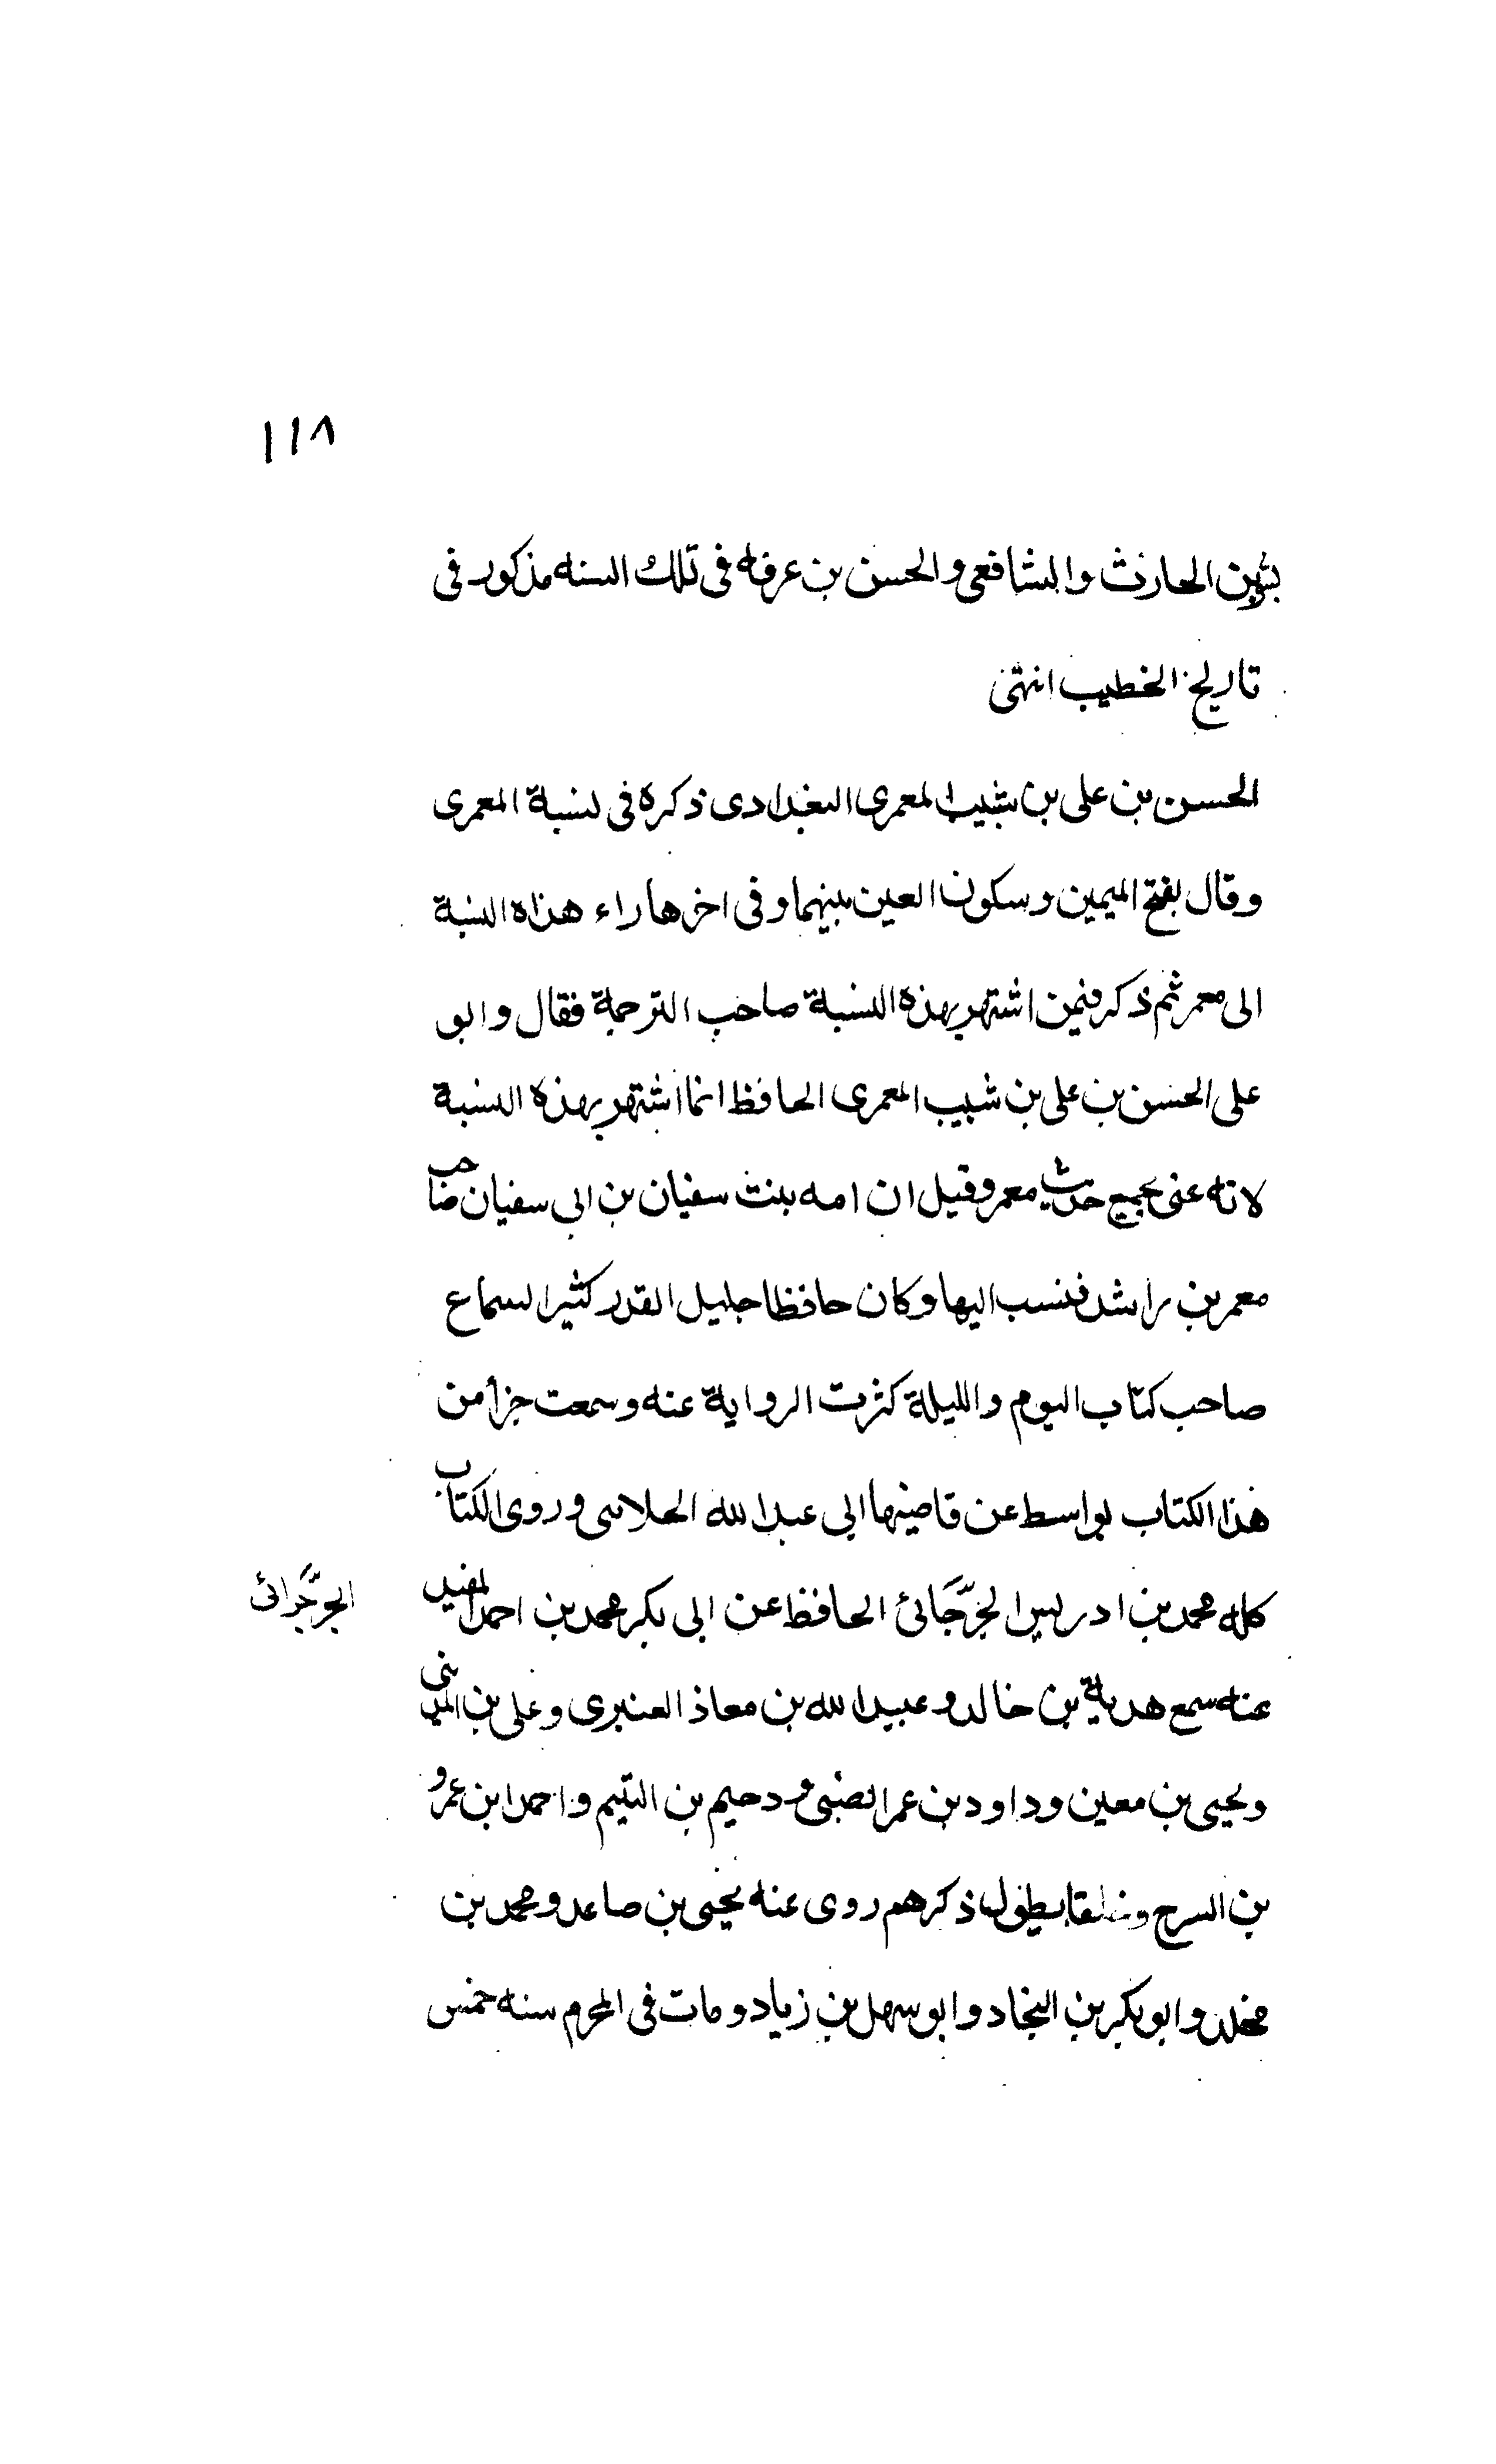 ١١٨
بشربن الحارث والشافعي والحسن بن عرفه فى تلك السنه مذكور فى
تاريخ الخطيب انتهى
الحسن بن على بن شبيب المعمرى البغدادى ذكره فى نسبة المعمرى
وقال بفتح الميمين وسكون العين بينهما وفى اخرها راء هذه النسبة
الى معمر ثم ذكر فيمن اشتهر بهذه النسبة صاحب الترجمة فقال وابو
على الحسن بن على بن شبيب المعمرى الحافظ انما اشتهر بهذه النسبة
لانه عنى بجميع حديث معمر وقيل ان امه بنت سفيان بن ابى سفيان صاحب
معمر بن راشد فنسب اليها وكان حافظا جليل القدر كثير السماع
صاحب كتاب اليوم والليلة كثرت الرواية عنه وسمعت جزأ من
هذا الكتاب بواسط عن قاضيها ابى عبد الله الحلابى وروى الكتاب
كله محمد بن ادريس الجرّجَائى الحافظ عن ابى بكر محمد بن احمد المفيد
الجرّجَرائى
عنه سمع هدبة بن خالد وعبيد الله بن معاذ العنبرى وعلى بن المدينى
ويحيى بن معين وداود بن عمر الضبى و دحيم بن اليتيم واحمد ابن عمرو
بن السرح وخلقا يطول ذكرهم روى عنه يحيى بن صاعد ومحمد بن
مخلد وابو بكر بن النجاد وابو سهل بن زياد ومات فى المحرم سنه خمس